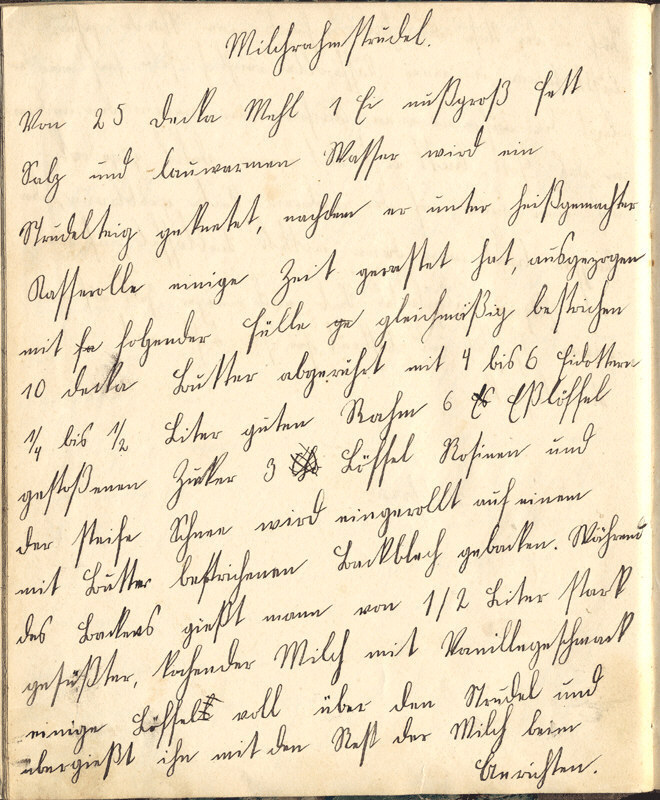 Milchrahmstrudel.
Von 25 Decka Mehl 1 Ei nußgroß Fett
Salz und lauwarmen Wasser wird ein
Strudelteig geknetet, nachdem er unter heißgemachter
Kasserolle einige Zeit gerastet hat, ausgezogen
mit folgender Fülle gleichmäßig bestrichen
10 decka Butter abgerührt mit 4 bis 6 Eidottern
1/4 bis 1/2 Liter guten Rahm 6 Eßlöffel
gestoßenen Zuker 3 Löffel Rosinen und
der steife Schnee wird eingerollt auf einem
mit Butter bestrichenen Backblech gebacken. Während
des Backens gießt mann von 1/2 Liter stark
gesüßter, kochender Milch mit Vanillegeschmack
einige Löffel voll über den Strudel und
übergießt ihn mit den Rest der Milch beim
Anrichten.